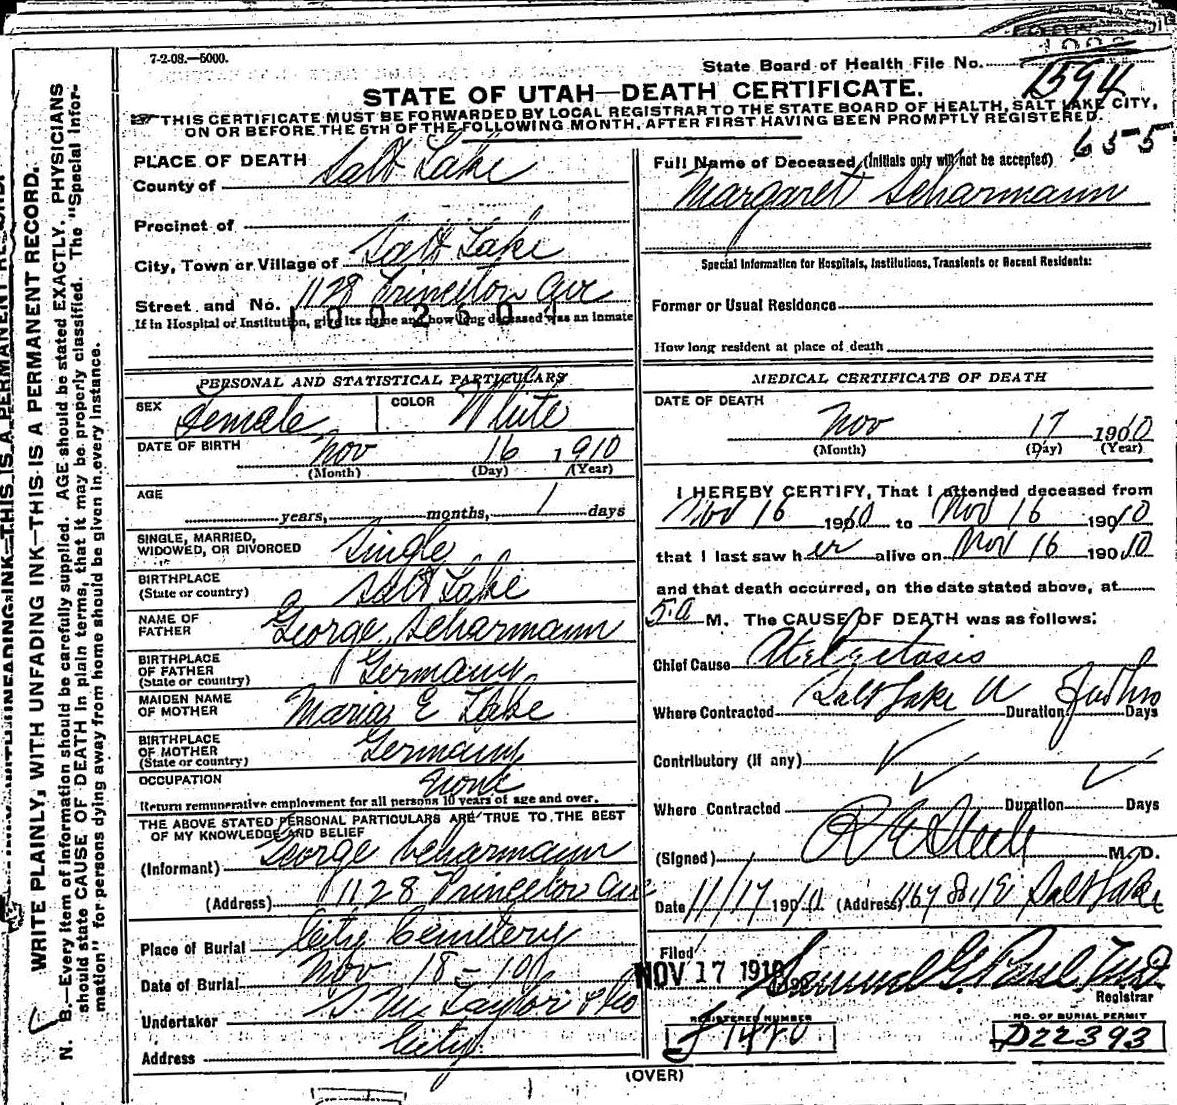 7-2-08.—5000.
State Board of Health File No. 1594
STATE OF UTAH—DEATH CERTIFICATE.
THIS CERTIFICATE MUST BE FORWARDED BY LOCAL REGISTRAR TO THE STATE BOARD OF HEALTH, SALT LAKE CITY,
ON OR BEFORE THE 5TH OF THE FOLLOWING MONTH, AFTER FIRST HAVING BEEN PROMPTLY REGISTERED.
655
PLACE OF DEATH
County of Salt Lake
Precinct of
City, Town or Village of Salt Lake
Street and No. 1128 Princeton Ave
If in Hospital or Institution, give its name and how long deceased was an inmate
1002604
PERSONAL AND STATISTICAL PARTICULARS
SEX Female COLOR White
DATE OF BIRTH Nov 16 1910
(Month) (Day) (Year)
AGE
years, months, 1 days
SINGLE, MARRIED,
WIDOWED, OR DIVORCED Single
BIRTHPLACE
(State or country) Salt Lake
NAME OF
FATHER George Scharmann
BIRTHPLACE
OF FATHER
(State or country) Germany
MAIDEN NAME
OF MOTHER Maria E Lake
BIRTHPLACE
OF MOTHER
(State or country) Germany
OCCUPATION None
Return remunerative employment for all persons 10 years of age and over.
THE ABOVE STATED PERSONAL PARTICULARS ARE TRUE TO THE BEST
OF MY KNOWLEDGE AND BELIEF
(Informant) George Scharmann
(Address) 1128 Princeton Ave
Place of Burial City Cemetery
Date of Burial Nov 18 - 190
Undertaker S. M. Taylor & Co
Address City
Full Name of Deceased (Initials only will not be accepted)
Margaret Scharmann
Special Information for Hospitals, Institutions, Transients or Recent Residents:
Former or Usual Residence
How long resident at place of death
MEDICAL CERTIFICATE OF DEATH
DATE OF DEATH
Nov 17 1910
(Month) (Day) (Year)
I HEREBY CERTIFY, That I attended deceased from
Nov 16 1910 to Nov 16 1910
that I last saw her alive on Nov 16 1910
and that death occurred, on the date stated above, at
5 a M. The CAUSE OF DEATH was as follows:
Chief Cause Atelectasis
Where Contracted Salt Lake U Duration Days
Contributory (If any)
Where Contracted Duration Days
(Signed) M. D.
Date 11/17 1910 (Address) Salt Lake
Filed
NOV 17 1910 Samuel G. Paul
Registrar
REGISTERED NUMBER
J 1470
NO. OF BURIAL PERMIT
D22393
(OVER)
WRITE PLAINLY, WITH UNFADING INK—THIS IS A PERMANENT RECORD.
N. B.—Every item of information should be carefully supplied. AGE should be stated EXACTLY. PHYSICIANS
should state CAUSE OF DEATH in plain terms, that it may be properly classified. The "Special Infor-
mation" for persons dying away from home should be given in every instance.